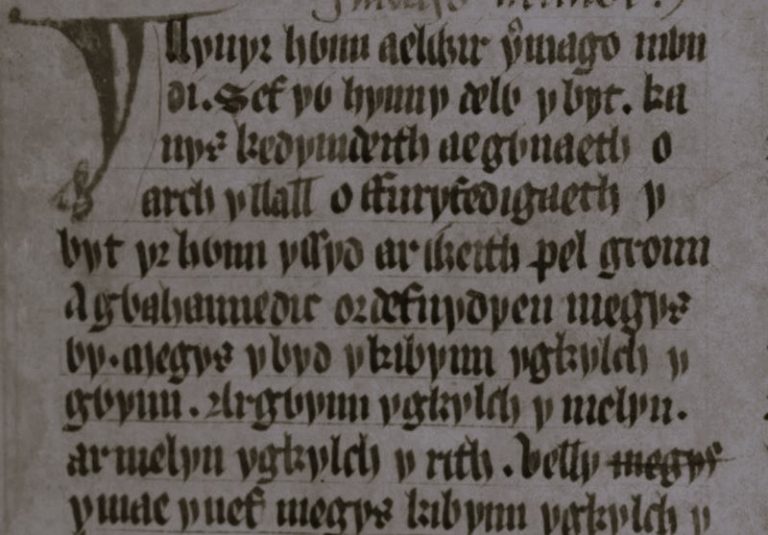 Y llyuyr hỽnn aelỽir ymago mỽn
di. Sef yỽ hynny delỽ y byt. ka
nys kedymdeith aegỽnaeth o
arch yllall o ffuryfedigaeth y
byt yr hỽnn yssyd ar ỽeith pel gronn
Agỽahannedic or defnydyeu megys
ỽy. Megys ybyd ykibynn ygkylch y
gỽynn. Argỽynn ygkylch y melyn.
armelyn ygkylch y rith. velly megys
ymae ynef megys kibynn ygkylch y